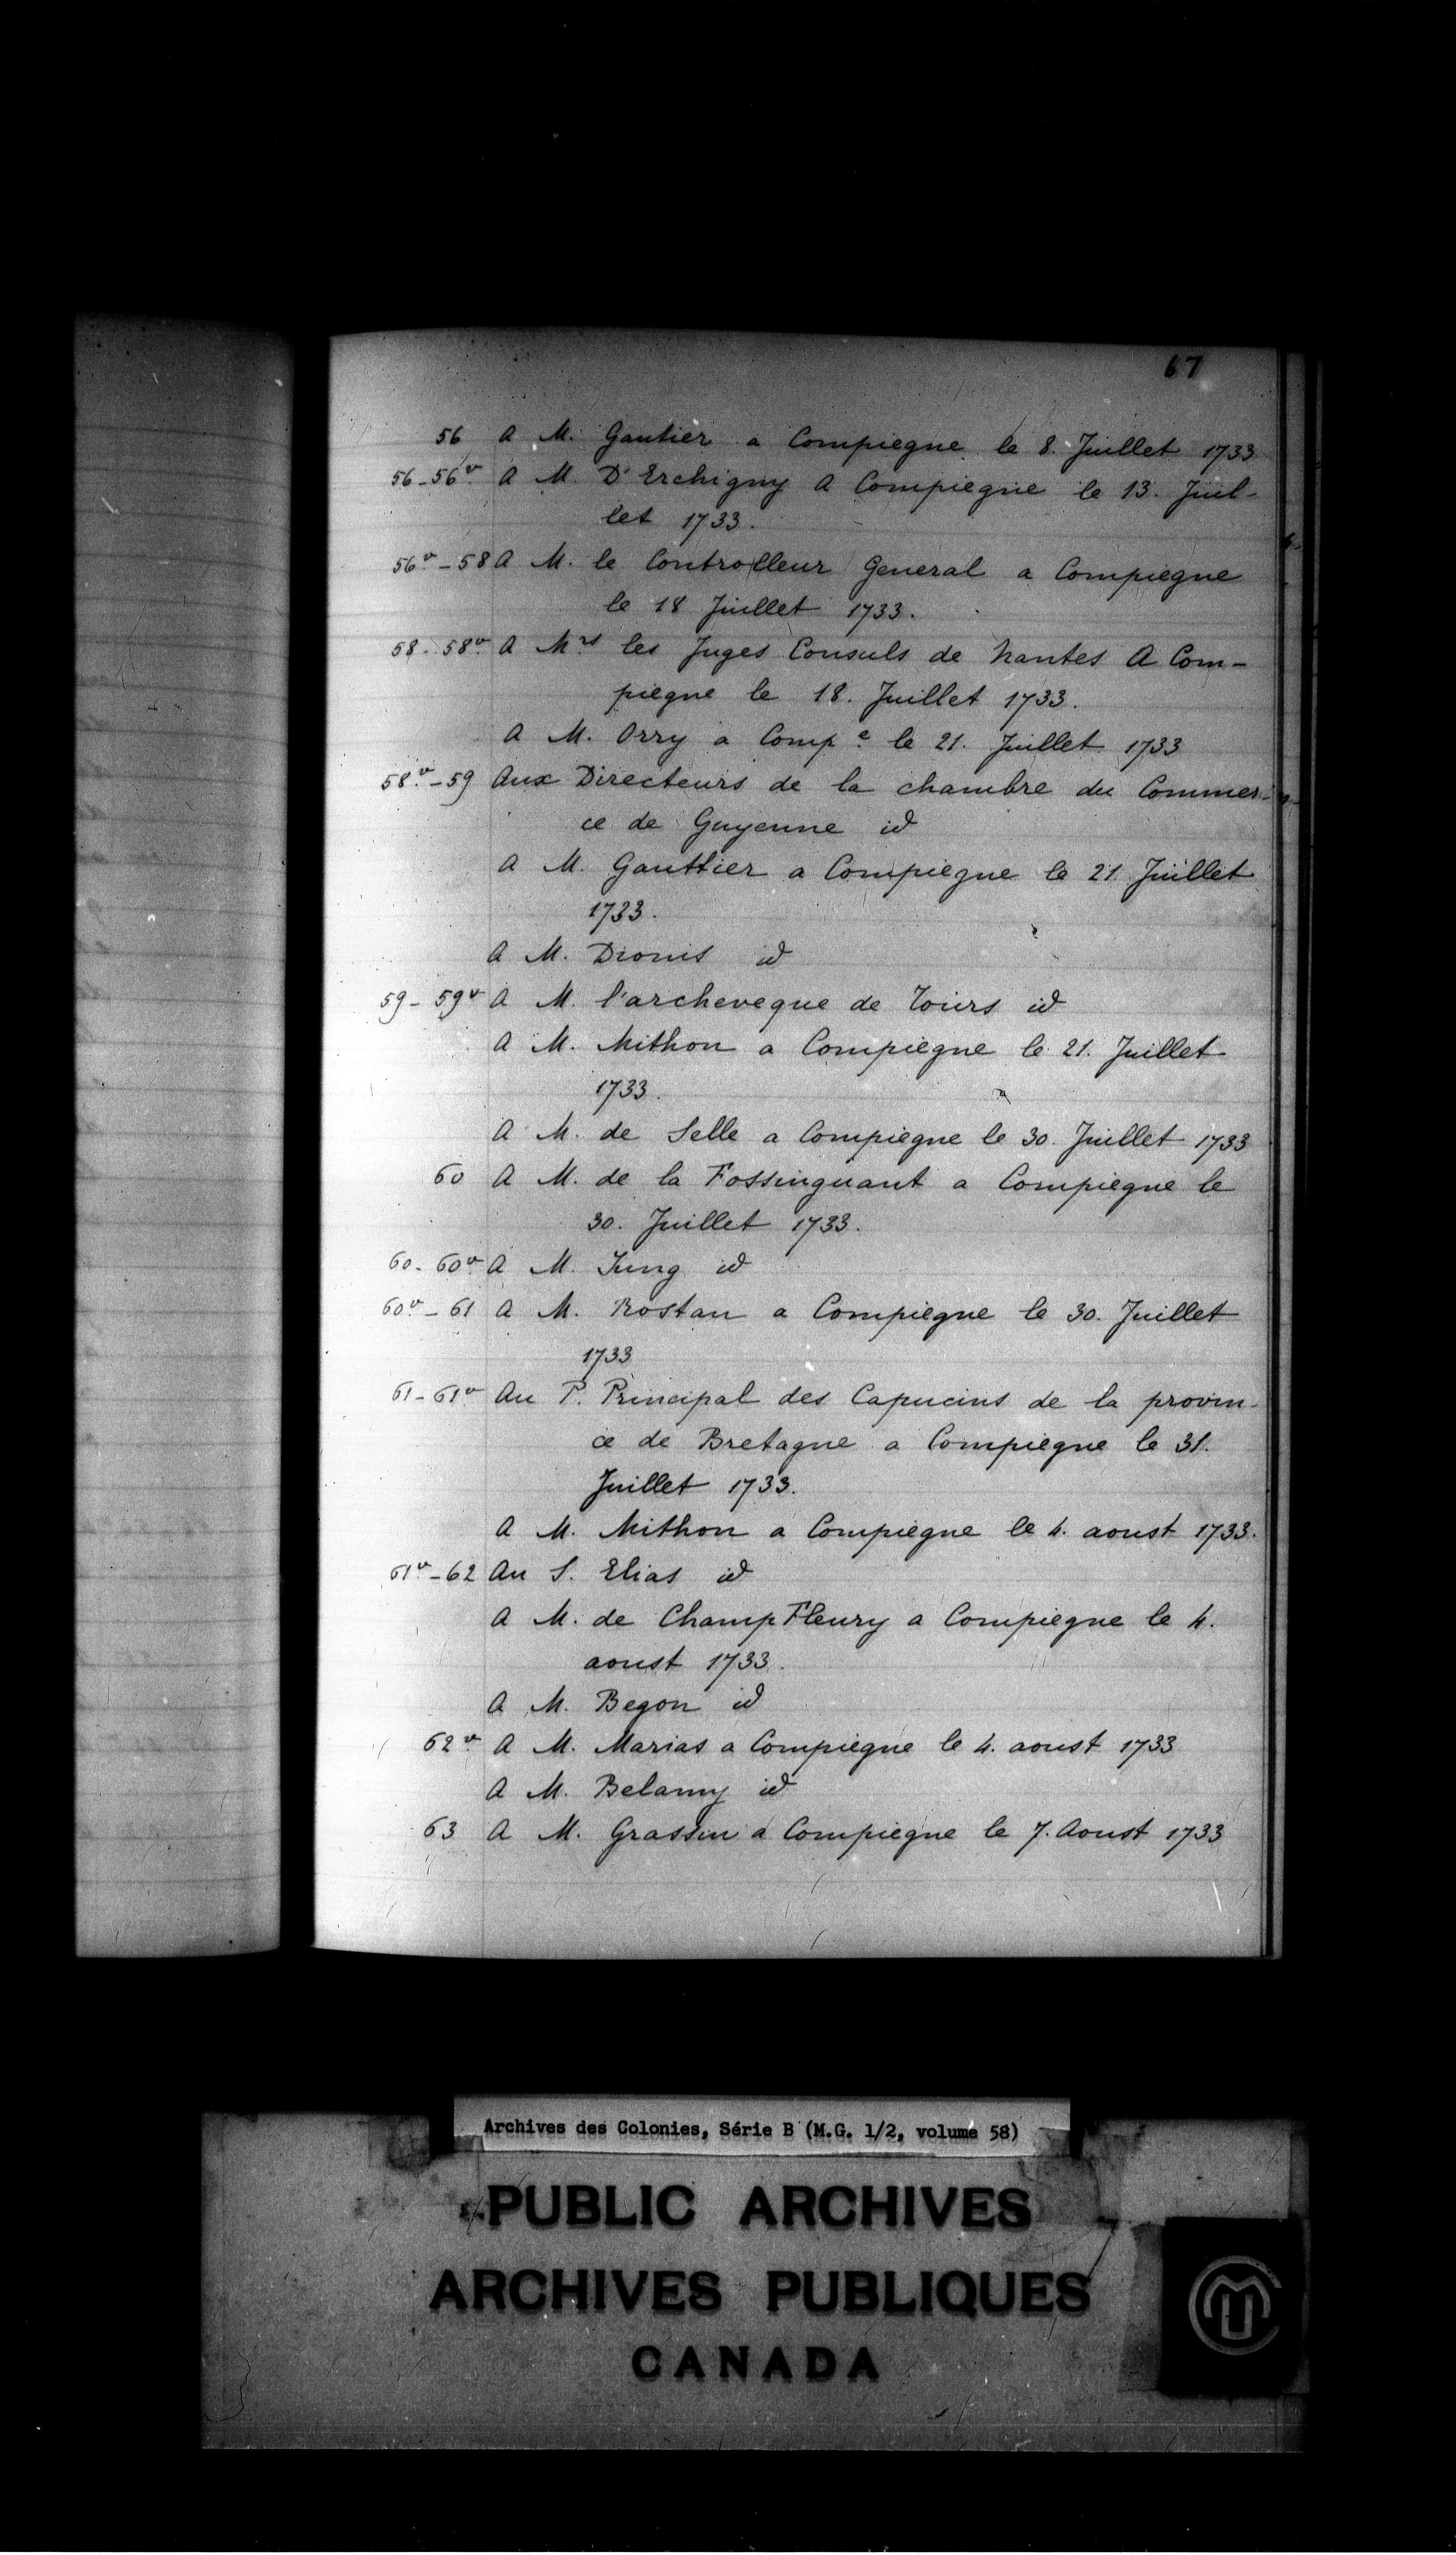 67
56 A M. Gautier a Compiegne le 8. Juillet 1733
56-56v. A M. D'Erchigny A Compiegne le 13. Juil-
let 1733.
56v.-58 A M. le Controlleur General a Compiegne
le 18 Juillet 1733.
58-58v. A Mrs les Juges Consuls de Nantes A Com-
piegne le 18. Juillet 1733.
A M. Orry a Compe. le 21. Juillet 1733
58v.-59 Aux Directeurs de la chambre du Commer-
ce de Guyenne id
A M. Gauttier a Compiegne le 21. Juillet
1733.
A M. Dionis id
59-59v A M. l'archeveque de Tours id
A M. Mithon a Compiegne le 21. Juillet
1733.
A M. de Selle a Compiegne le 30. Juillet 1733
60 A M. de la Fossinguant a Compiegne le
30. Juillet 1733.
60-60v. A M. Jung id
60v.-61 A M. Rostan a Compiegne le 30. Juillet
1733
61-61v Au P. Principal des Capucins de la provin-
ce de Bretagne a Compiegne le 31.
Juillet 1733.
A M. Mithon a Compiegne le 4. aoust 1733.
61v.-62 Au S. Elias id
A M. de ChampFleury a Compiegne le 4.
aoust 1733.
A M. Begon id
62v. A M. Marias a Compiegne le 4. aoust 1733
A M. Belamy id
63 A M. Grassin a Compiegne le 7. Aoust 1733
Archives des Colonies, Série B (M.G. 1/2, volume 58)
PUBLIC ARCHIVES
ARCHIVES PUBLIQUES
CANADA